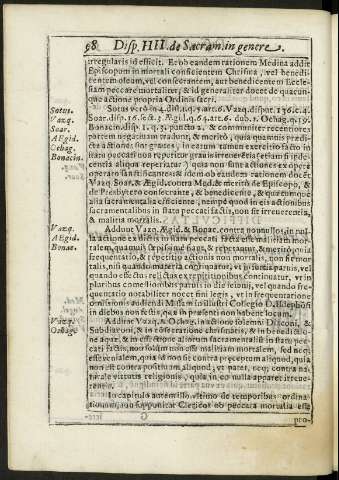 98 Disp. IIII. de Sacram. in genere.
irregularis id efficit. Et ob eandem rationem Medina addit
Episcopum in mortali conficientem Chrisma, vel benedi-
centem oleum, vel consecrantem, aut benedicentem Eccle-
siam peccare mortaliter, & id generaliter docet de quacun-
que actione propria Ordinis sacri.
Sotus.
Vazq.
Soar.
AEgid.
Ochag.
Bonacin.
Sotus vero in 4. dist. 1. q. 5. art. 6. Vazq. disput. 136. c. 4.
Soar. disp. 16. sect. 3. AEgid. q. 64. art. 6. dub. 1. Ochag. q. 19.
Bonacin. disp. 1. q. 3. puncto 2. & communiter recentiores
partem negativam tradunt, & merito, quia quamvis predi-
ctae actiones sint graves, in earum tamen exercitio facto in
statu peccati non reperitur gravis irreverentia
actiones ex opere
operato sanctificantes: & idem ob eandem rationem docet
Vazq. Soar, & AEgid. contra Med. & merito de Episcopo, &
de Presbytero consecrante, & benedicente, & quaecumque
alia sacramentalia efficiente, nempe quod in eis actionibus
sacramentalibus in statu peccati factis, non sit irreverentia,
& malitia mortalis.
Vazq.
AEgid.
Bonac.
Addunt Vazq. AEgid. & Bonac. contra nonnullos, in nul-
la actione ex dictis in statu peccati facta esse malitiam mor-
talem, quamvis sepissime fiant, & repetantur, & merito quia
frequentatio, & repetitio actionis non mortalis, non fit mor-
talis, nisi quando materia coniungatur, vt in furtis parvis, vel
quando effectus relictus ex repetitionibus continuatur, vt in
pluribus comestionibus parvis in die ieiunij, vel quando fre-
quentatio notabiliter nocet fini legis, vt in frequentatione
omissionis audiendi Missam in illustre Collegio D. Ildephonsi
in diebus non festis, quae in presenti non habent locum.
Vazq.
Ochag.
Addit Vazq. & Ochag. in actione solemni Diaconi, &
Subdiaconi, & in consecratione chrismatis, & in benedictio-
ne aquae, & in effectione aliorum sacramentalium in statu pec-
cati factis, non solum non esse malitiam mortalem, sed neque
esse venialem, quia id non est contra preceptum aliquod, quia
non est contra positivum aliquod, vt patet, neque contra na-
turale virtutis religionis, quia in eo nulla apparet irreve-
rentia.
In capitulo autem illo vltimo de temporibus ordina-
tionum, non supponitur Clericos eo peccata mortalia esse
G
pro-